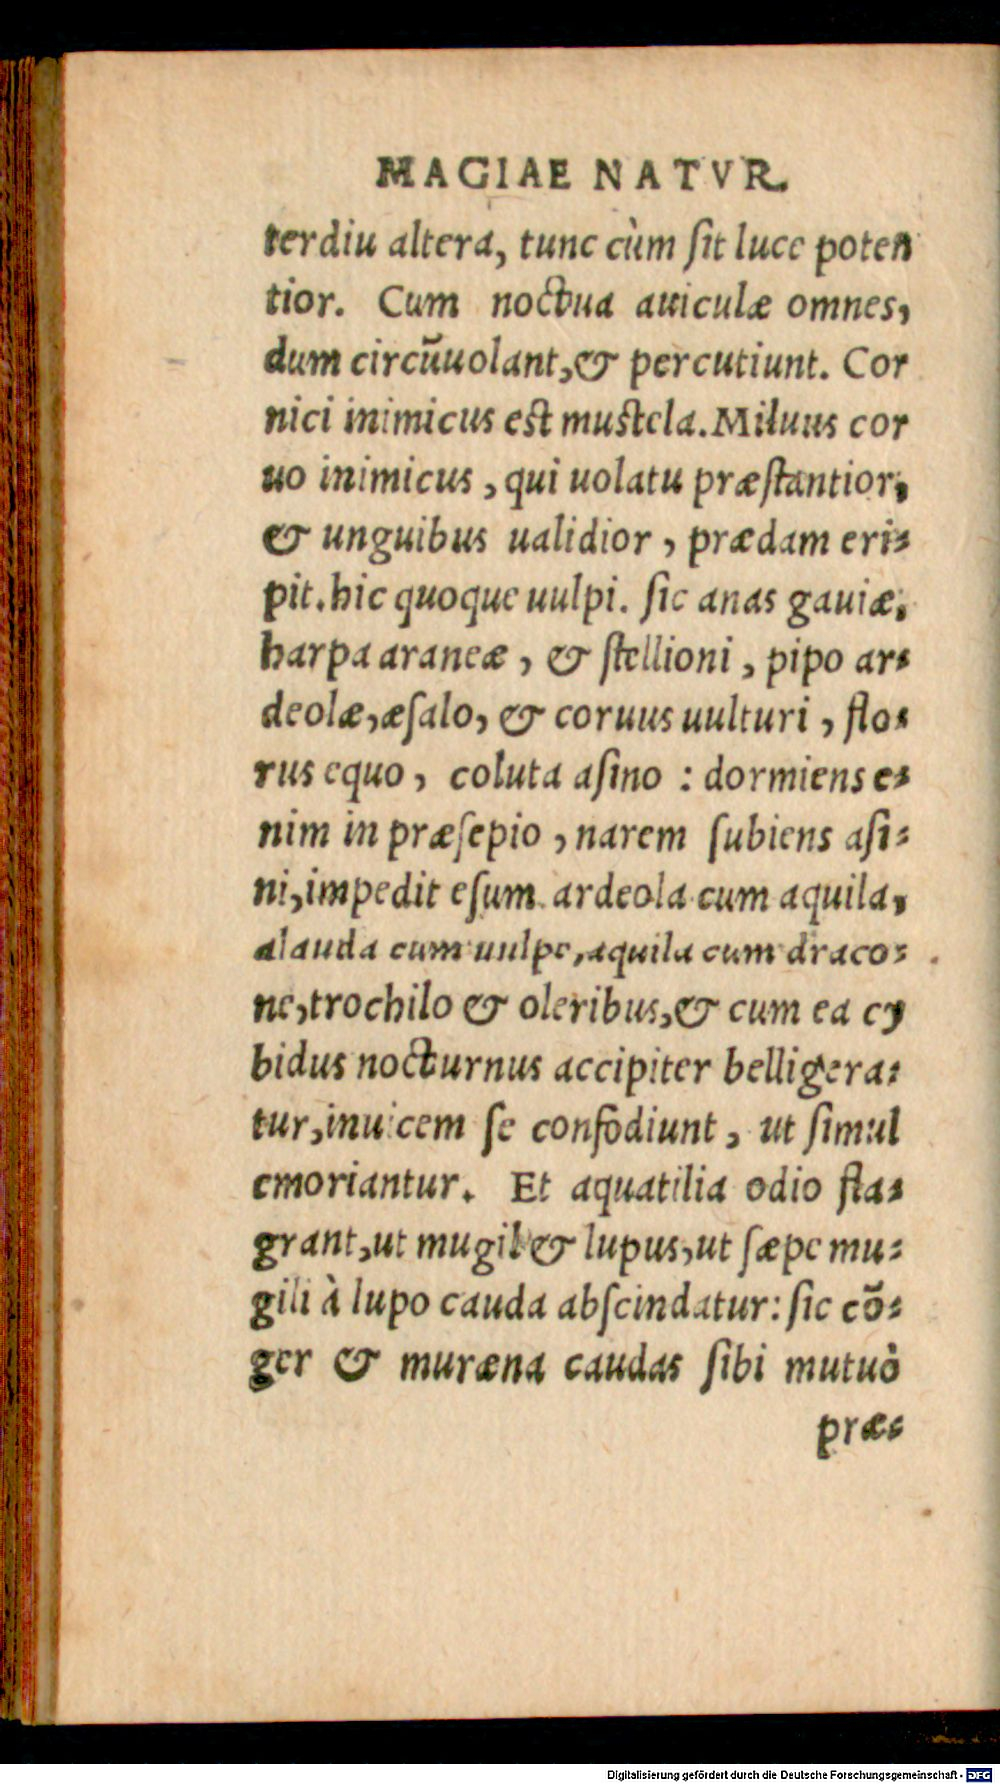 MAGIAE NATVR.
terdiu altera, tunc cùm ſit luce poten
tior. Cum noctua auiculæ omnes,
dum circũuolant,& percutiunt. Cor
nici inimicus est mustela. Miluus cor
uo inimicus, qui uolatu præſtantior,
& unguibus ualidior, prædam eri-
pit. hic quoque uulpi. ſic anas gauiæ,
harpa araneæ, & ſtellioni, pipo ar-
deolæ, æſalo, & coruus uulturi, flo-
rus equo, coluta aſino : dormiens e-
nim in præſepio, narem ſubiens aſi-
ni, impedit eſum. ardeola cum aquila,
alauda cum uulpe, aquila cum draco-
ne, trochilo & oleribus,& cum ea cy
bidus nocturnus accipiter belligera-
tur, inuicem ſe confodiunt, ut ſimul
emoriantur. Et aquatilia odio fla-
grant, ut mugil & lupus, ut ſæpe mu-
gili à lupo cauda abſcindatur: ſic cõ-
ger & muræna caudas ſibi mutuò
præ-
Digitalisierung gefördert durch die Deutsche Forschungsgemeinschaft - DFG